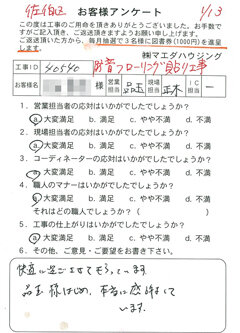 佐伯区
お客様アンケート
4/13
この度は工事のご用命を頂きありがとうございました。お手数で
すがご記入頂き、ご返送頂きますようお願い申し上げます。
ご返送頂いた方から、毎月抽選で3名様に図書券(1000円)を進呈
します。
㈱マエダハウジング
工事ID 40540 防音フローリング貼り工事
お客様名 様 営業担当 現場担当 正木 C担当 ー
1. 営業担当者の応対はいかがでしたでしょうか?
a.大変満足 b.満足 c.やや不満 d.不満
2. 現場担当者の応対はいかがでしたでしょうか?
a.大変満足 b.満足 c.やや不満 d.不満
3. コーディネーターの応対はいかがでしたでしょうか?
a.大変満足 b.満足 c.やや不満 d.不満
4. 職人のマナーはいかがでしたでしょうか?
a.大変満足 b.満足 c.やや不満 d.不満
それはどの職人でしょうか( )
5. 工事の仕上がりはいかがでしたでしょうか?
a.大変満足 b.満足 c.やや不満 d.不満
6. その他、ご意見・ご要望をお書き下さい。
快適に過ごさせてもらっています。
様はじめ、本当に感謝して
います。